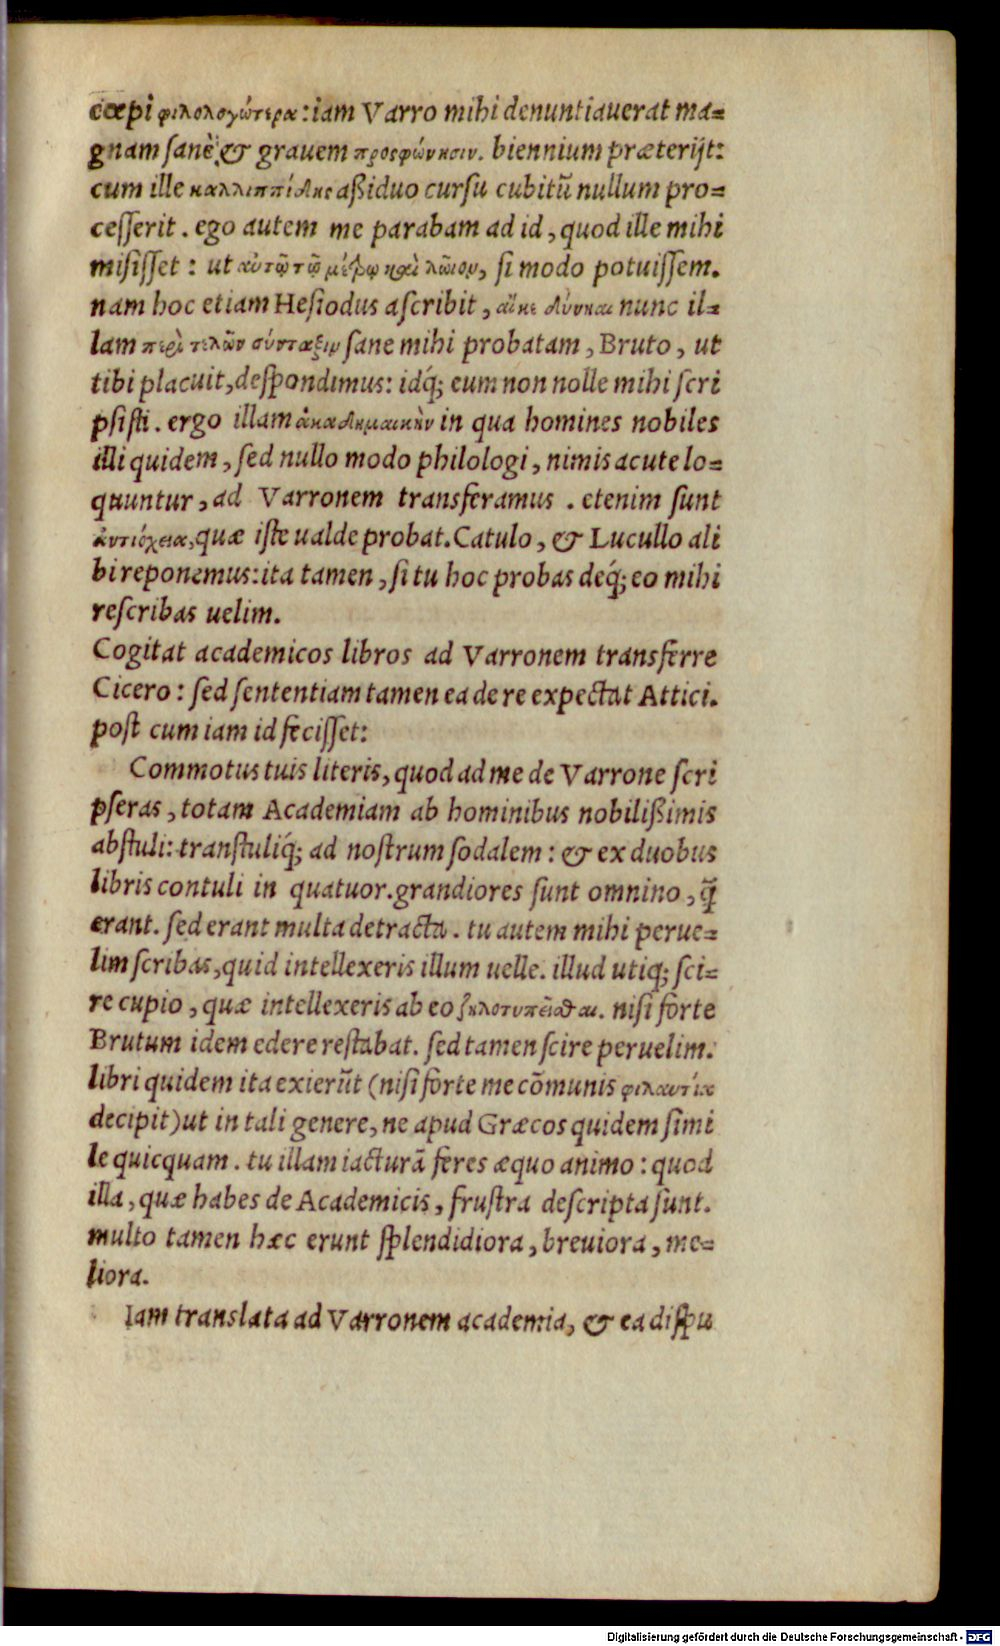 cœpi φιλολογώτερα: iam Varro mihi denuntiauerat ma=
gnam sanè & grauem προςφώνησιν. biennium præterijt:
cum ille καλλιππίδης aßiduo cursu cubitũ nullum pro=
cesserit. ego autem me parabam ad id, quod ille mihi
misisset: ut αὐτῷ τῷ μέτρῳ καὶ λώιον, si modo potuissem.
nam hoc etiam Hesiodus ascribit, αἴκε δύνηαι nunc il=
lam περὶ τελῶν σύνταξιν sane mihi probatam, Bruto, ut
tibi placuit, despondimus: idq́; eum non nolle mihi scri
psisti. ergo illam ἀκαδημαικὴν in qua homines nobiles
illi quidem, sed nullo modo philologi, nimis acute lo=
quuntur, ad Varronem transferamus. etenim sunt
ἀντιόχεια, quæ iste ualde probat. Catulo, & Lucullo ali
bi reponemus: ita tamen, si tu hoc probas deq́; eo mihi
rescribas uelim.
Cogitat academicos libros ad Varronem transferre
Cicero: sed sententiam tamen ea de re expectat Attici.
post cum iam id fecisset:
Commotus tuis literis, quod ad me de Varrone scri
pseras, totam Academiam ab hominibus nobilißimis
abstuli: transtuliq́; ad nostrum sodalem: & ex duobus
libris contuli in quatuor. grandiores sunt omnino, q̃
erant. sed erant multa detracta. tu autem mihi perue=
lim scribas, quid intellexeris illum uelle. illud utiq; sci=
re cupio, quæ intellexeris ab eo ζηλοτυπεῖσθαι. nisi forte
Brutum idem edere restabat. sed tamen scire peruelim.
libri quidem ita exierũt (nisi forte me cõmunis φιλαυτία
decipit) ut in tali genere, ne apud Græcos quidem simi
le quicquam. tu illam iacturã feres æquo animo: quod
illa, quæ habes de Academicis, frustra descripta sunt.
multo tamen hæc erunt splendidiora, breuiora, me=
liora.
Iam translata ad Varronem academia, & ea dispu
Digitalisierung gefördert durch die Deutsche Forschungsgemeinschaft - DFG